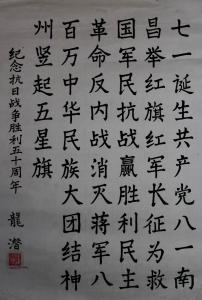 七一诞生共产党八一南
昌举红旗红军长征为救
国军民抗战赢胜利民主
革命反内战消灭蒋军八
百万中华民族大团结神
州竖起五星旗
纪念抗日战争胜利五十周年
龍潜